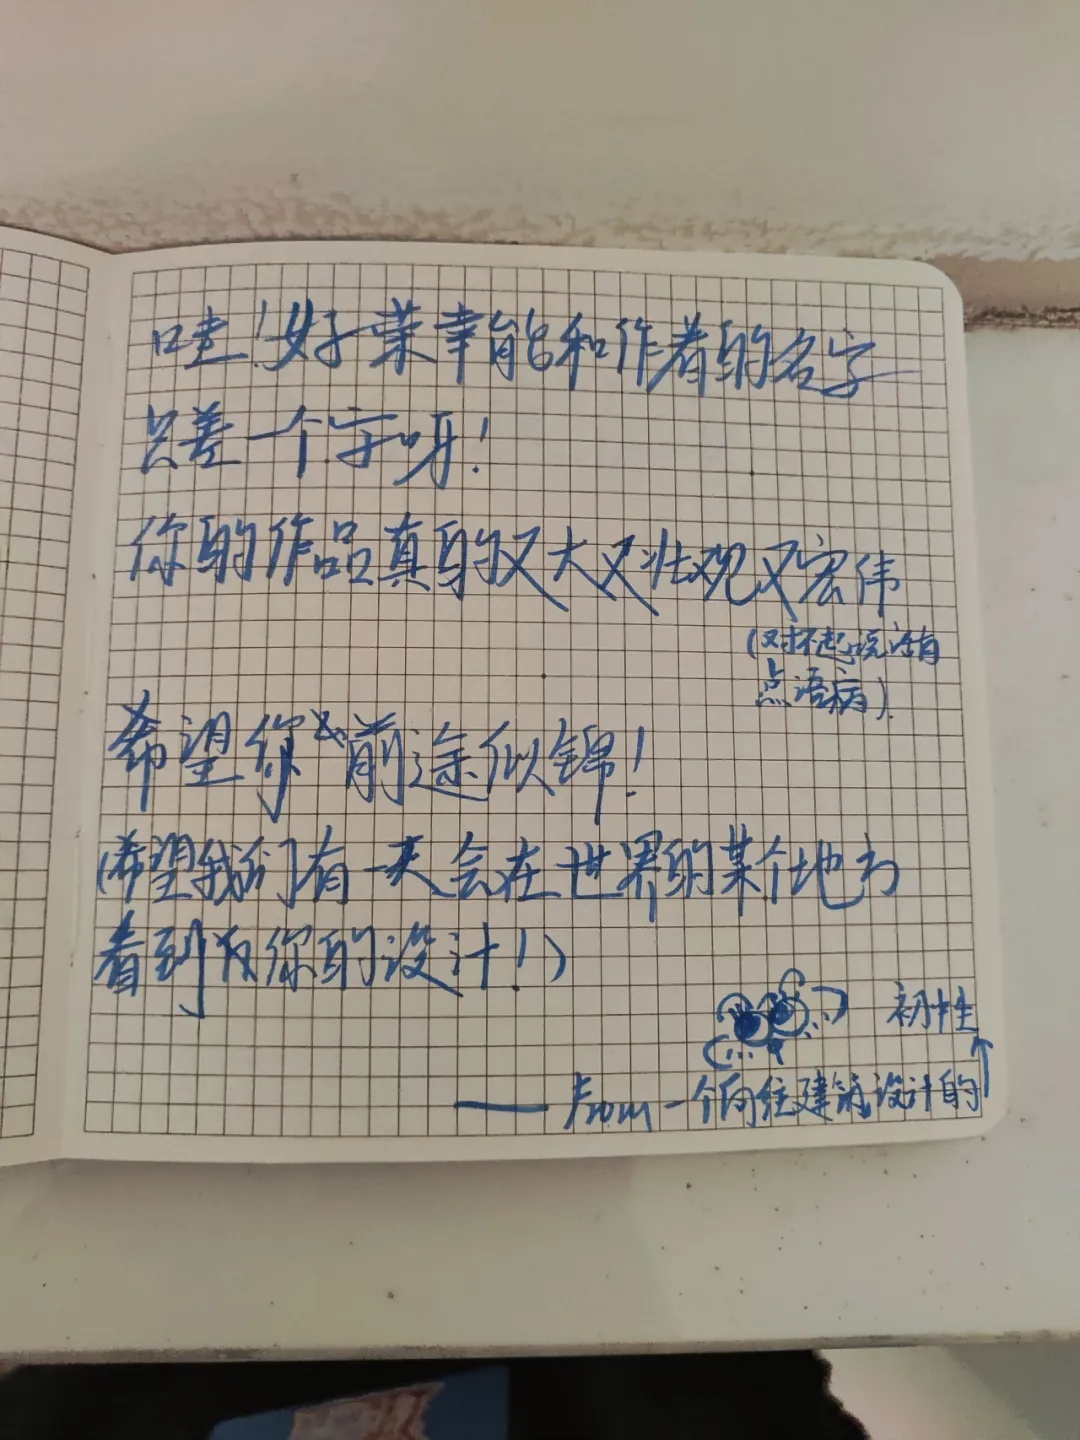 哇！好荣幸能和作者的名字
只差一个字呀！
你的作品真的又大又壮观又宏伟
(对不起说话有
点语病)
希望你前途似锦！
(希望我们有一天会在世界的某个地方
看到你的设计！)
初
—— from 一个向往建筑设计的